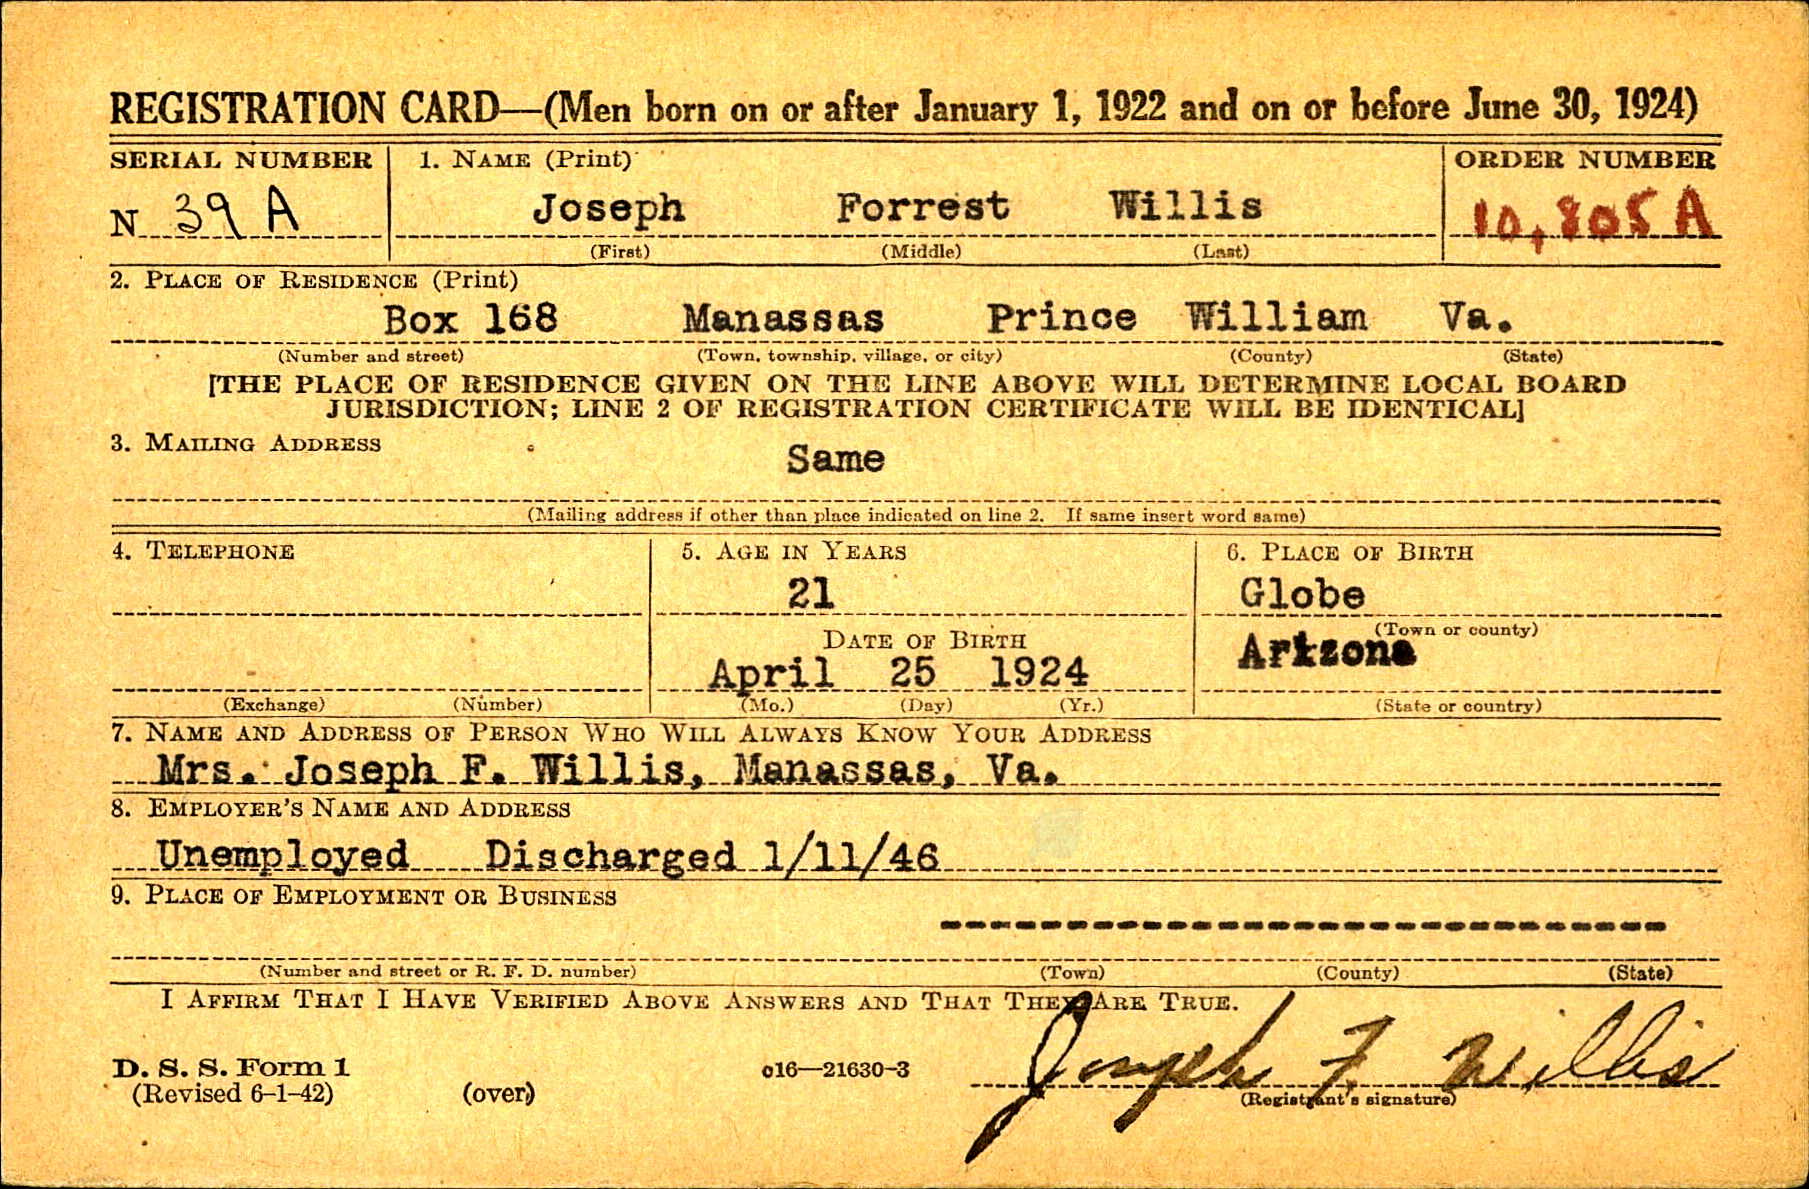 REGISTRATION CARD—(Men born on or after January 1, 1922 and on or before June 30, 1924)
SERIAL NUMBER 1. NAME (Print) ORDER NUMBER
N 39 A Joseph Forrest Willis 10,805 A
(First) (Middle) (Last)
2. PLACE OF RESIDENCE (Print)
Box 168 Manassas Prince William Va.
(Number and street) (Town, township, village, or city) (County) (State)
[THE PLACE OF RESIDENCE GIVEN ON THE LINE ABOVE WILL DETERMINE LOCAL BOARD
JURISDICTION; LINE 2 OF REGISTRATION CERTIFICATE WILL BE IDENTICAL]
3. MAILING ADDRESS
Same
(Mailing address if other than place indicated on line 2. If same insert word same)
4. TELEPHONE 5. AGE IN YEARS 6. PLACE OF BIRTH
21 Globe
(Town or county)
DATE OF BIRTH Arizona
April 25 1924
(Exchange) (Number) (Mo.) (Day) (Yr.) (State or country)
7. NAME AND ADDRESS OF PERSON WHO WILL ALWAYS KNOW YOUR ADDRESS
Mrs. Joseph F. Willis, Manassas, Va.
8. EMPLOYER'S NAME AND ADDRESS
Unemployed Discharged 1/11/46
9. PLACE OF EMPLOYMENT OR BUSINESS
(Number and street or R. F. D. number) (Town) (County) (State)
I AFFIRM THAT I HAVE VERIFIED ABOVE ANSWERS AND THAT THEY ARE TRUE.
D. S. S. Form 1 c16—21630-3 Joseph F. Willis
(Revised 6-1-42) (over) (Registrant's signature)